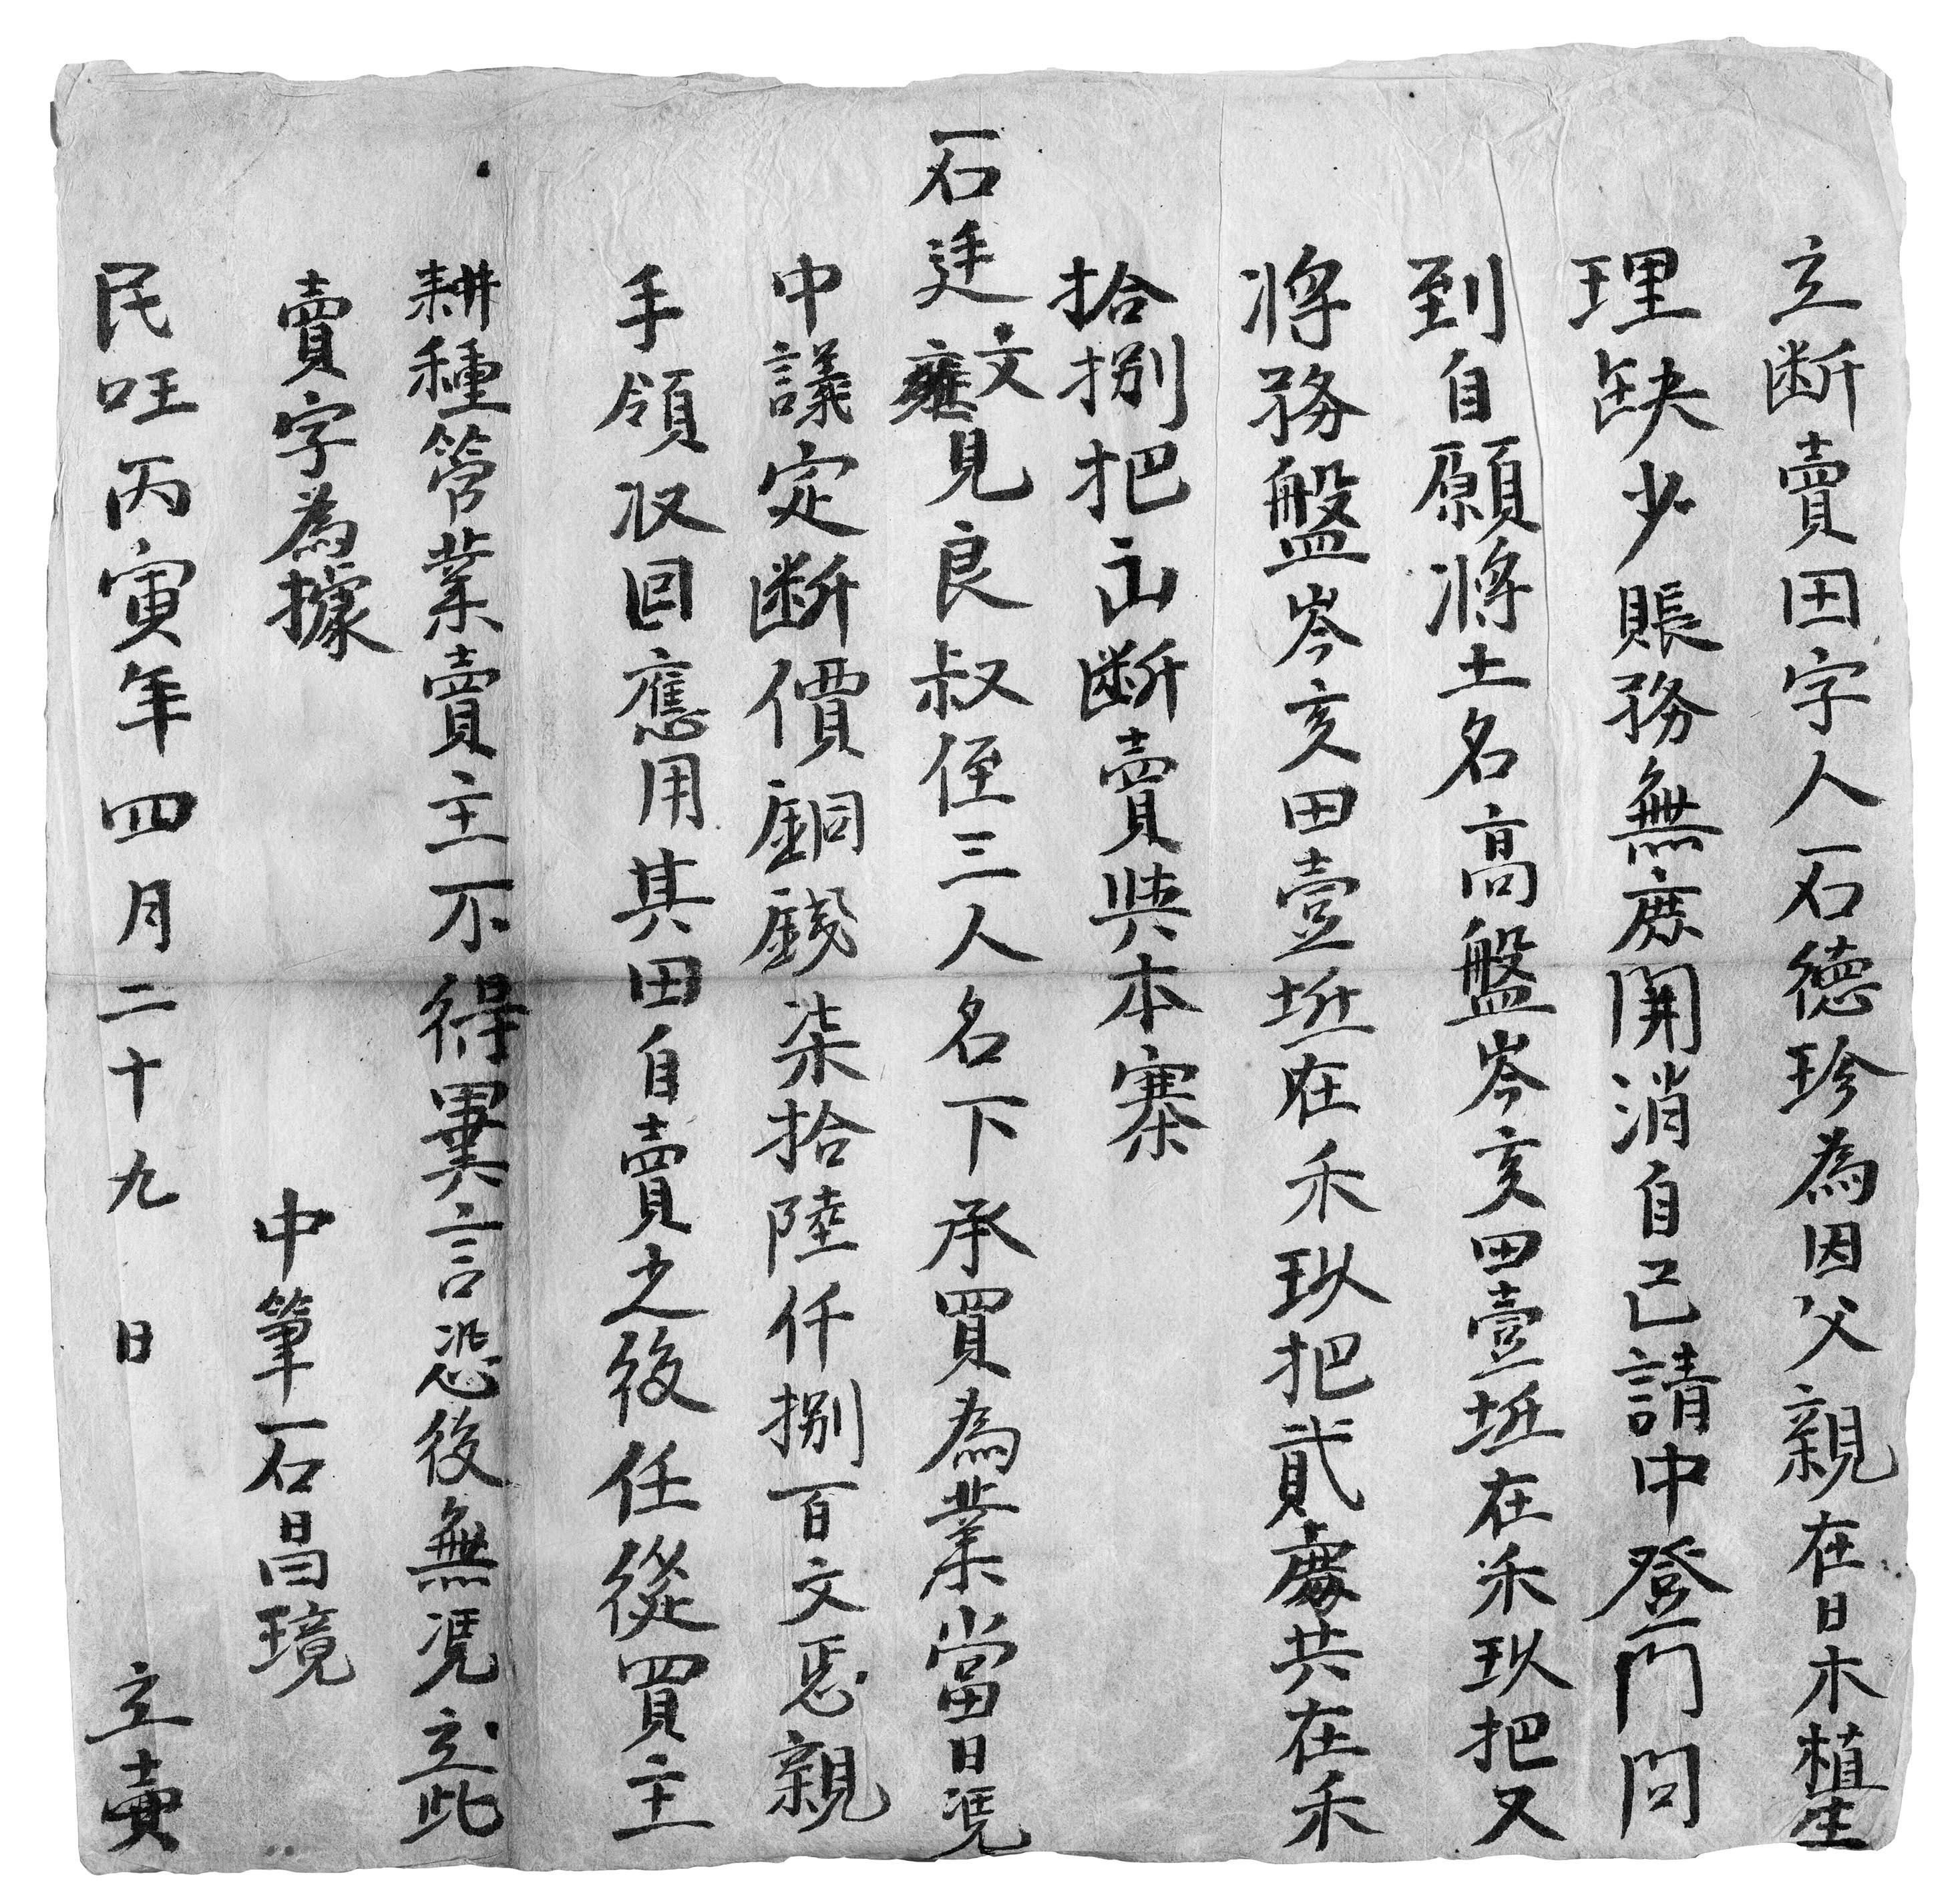 立断賣田字人石德珍為因父親在日木植生
理缺少賬務無處開消自己請中登門問
到自願將土名高盤岑亥田壹坵在禾玖把又
將務盤岑亥田壹坵在禾玖把貳處共在禾
拾捌把出断賣與本寨
石廷文雍見良叔侄三人名下承買為業當日憑
中議定断價銅錢柒拾陸仟捌百文恁親
手領収回應用其田自賣之後任從買主
耕種管業賣主不得異言恐後無憑立此
賣字為據
中筆石昌璄
民旺丙寅年四月二十九日立賣